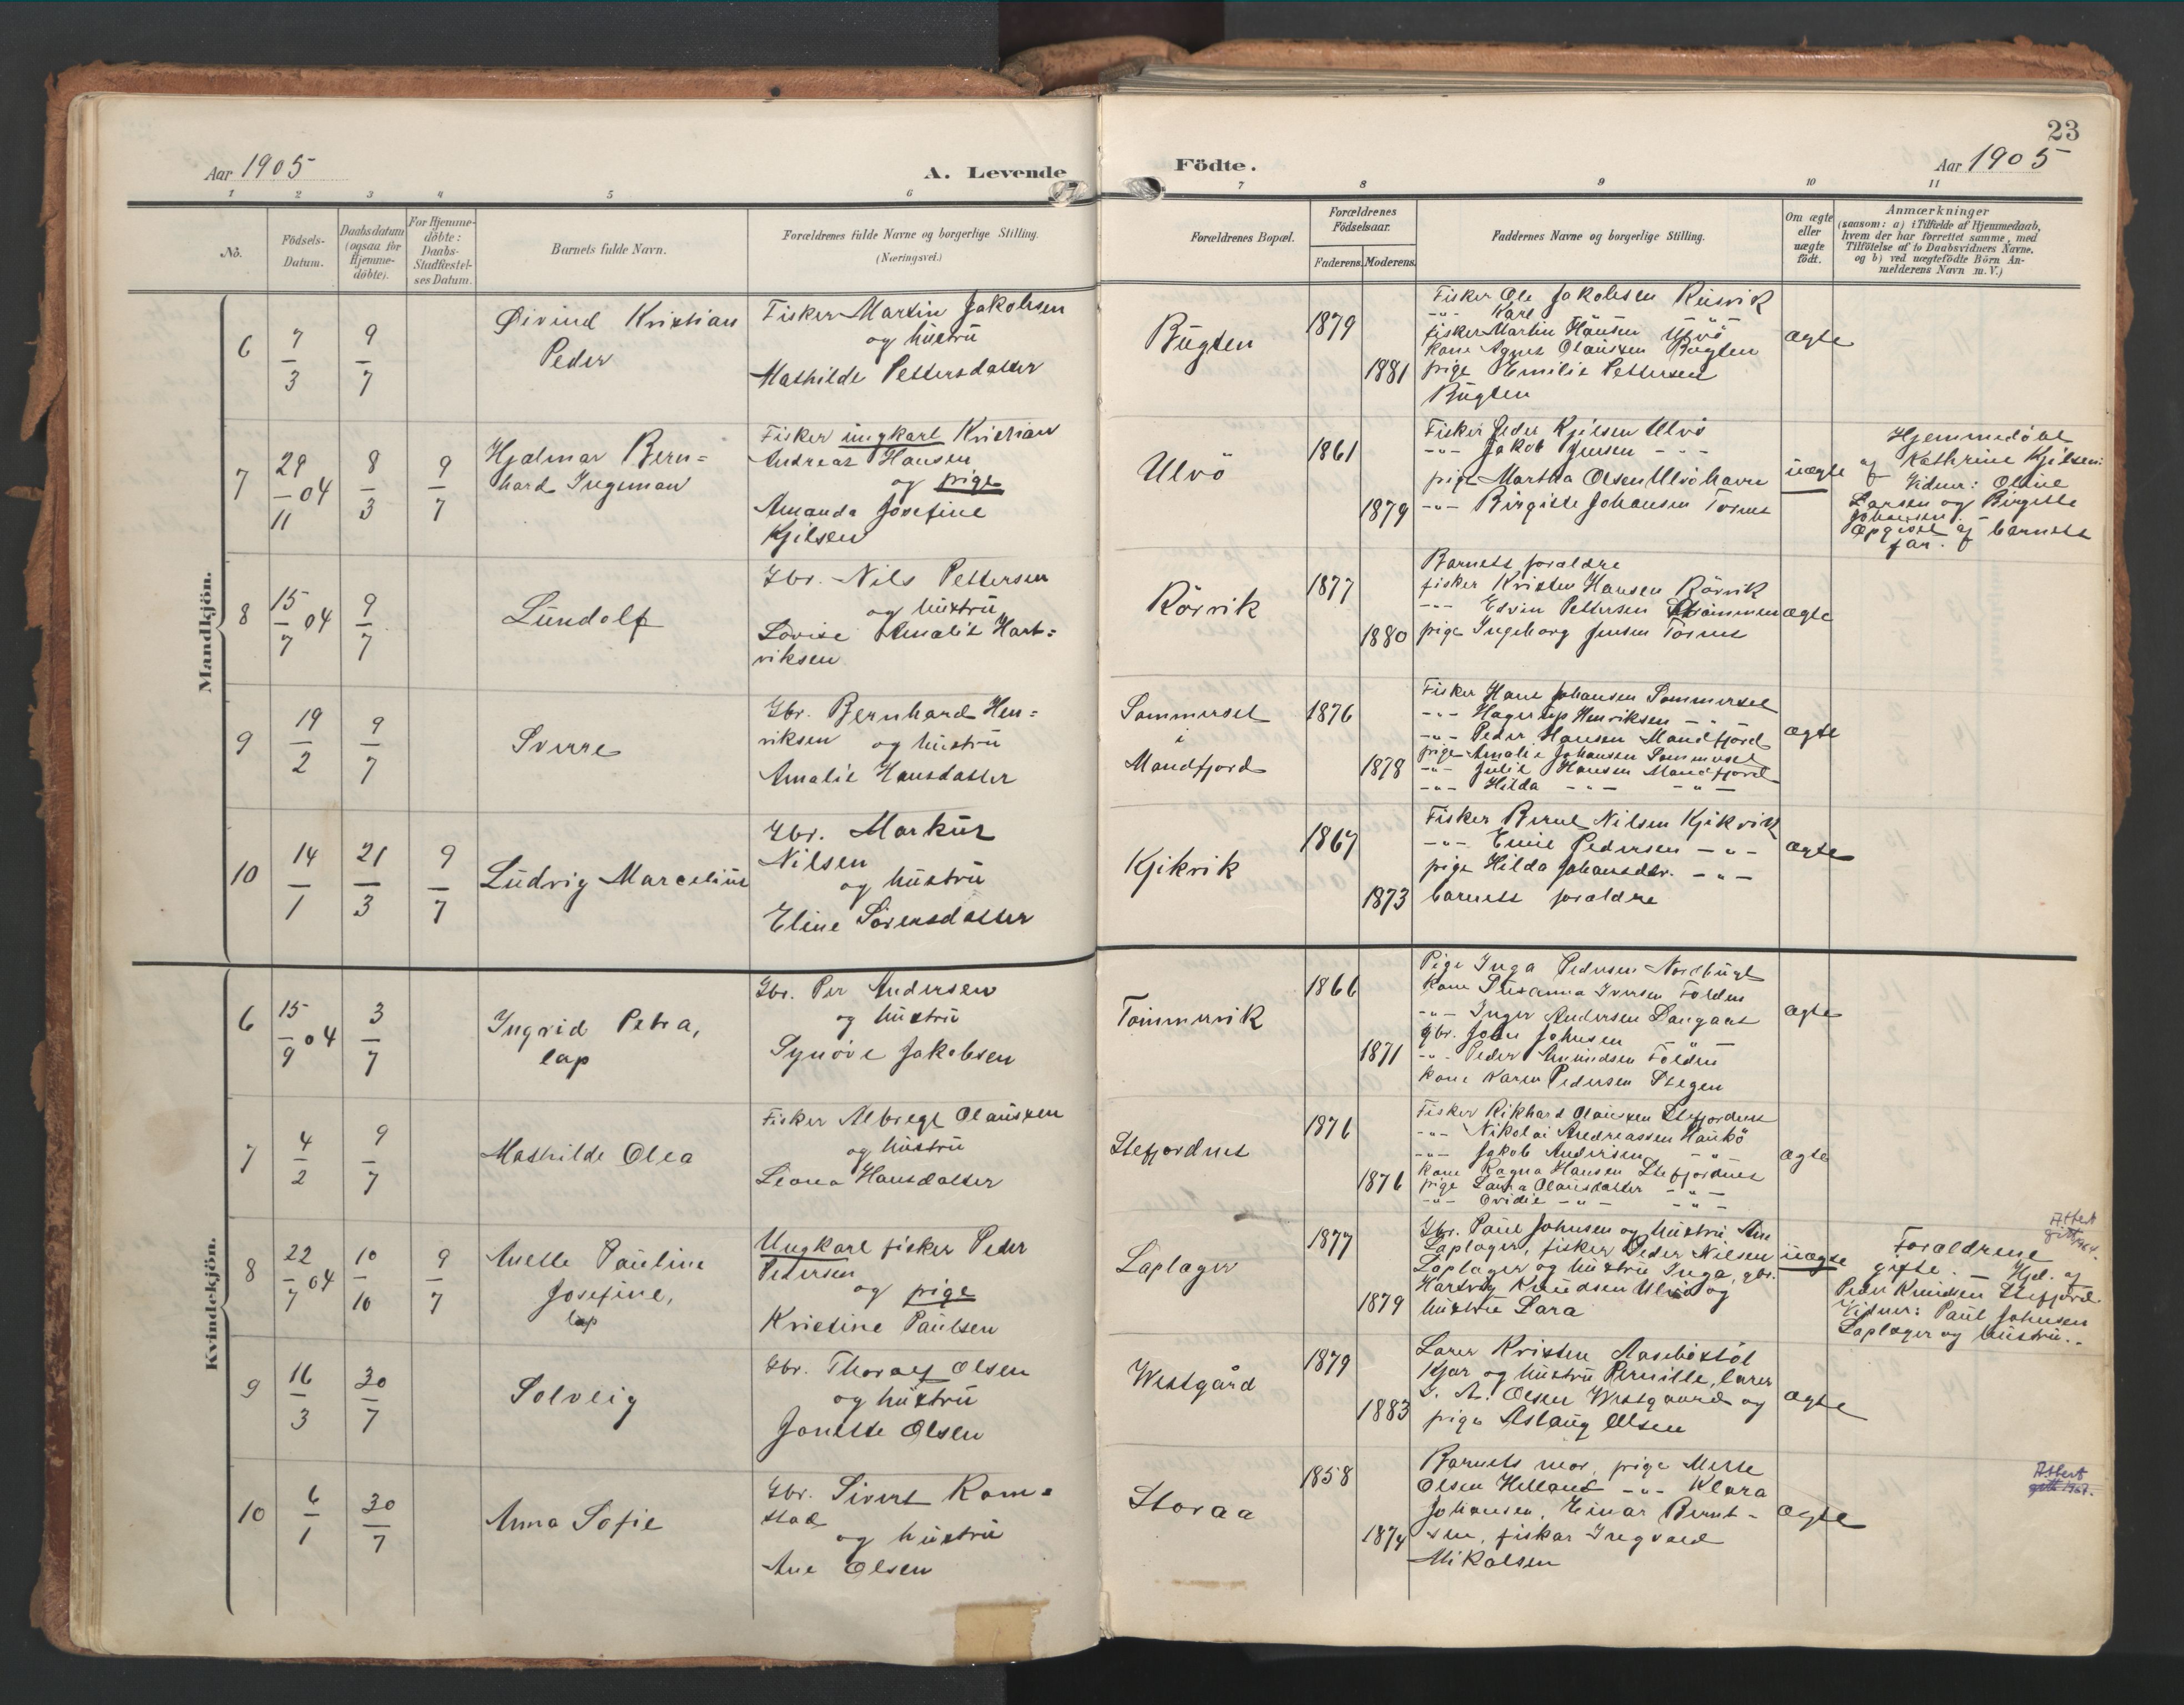 23
Aar 1905
A. Levende
Födte.
Aar 1905
1 2 3 4 5 6 7 8 9 10 11
No.
Födsels-
Datum.
Daabsdatum
(ogsaa for
Hjemme-
döbte).
For Hjemme-
döbte:
Daabs-
Stadfæstel-
ses Datum.
Barnets fulde Navn.
Forældrenes fulde Navne og borgerlige Stilling.
(Næringsvei.)
Forældrenes Bopæl.
Forældrenes
Födselsaar.
Faderens. Moderens.
Faddernes Navne og borgerlige Stilling.
Om ægte
eller
uægte
födt.
Anmærkninger
(saasom: a) i Tilfælde af Hjemmedaab,
hvem der har forrettet samme, med
Tilföielse af to Daabsvidners Navne,
og b) ved uægtefödte Börn An-
melderens Navn m. V.)
Mandkjön.
6
7
3
9
7
Øivind Kristian
Peder
Fisker Martin Jakobsen
og hustru
Mathilde Pettersdatter
Bugten
1879
1881
Fisker Ole Jakobsen Rusvik
-"- Karl -"-
fisker Martin Hansen Ulvö
kone Agnes Olaussen Bogten
pige Emilie Pettersen
Bugten
ægte
7
29
04
11
8
3
9
7
Hjalmar Bern=
hard Ingeman
Fisker ungkarl Kristian
Andreas Hansen
og pige
Amanda Josefine
Kjilsen
Ulvö
1861
1879
Fisker Peder Kjilsen Ulvö
-"- Jakob Jensen -"-
pige Martha Olsen Ulvöhavn
-"- Birgitte Johansen Tornes
uægte
Hjemmedöbt
af Kathrine Kjilsen.
Vidner: Oline
Larsen og Birgitte
Johansen. -
Opgivet af barnets
far.
8
15
04
7
9
7
Lundolf
Gbr. Nils Pettersen
og hustru
Lovise Amalie Hart=
viksen
Rörvik
1877
1880
Barnets forældre
fisker Kristen Hansen Rörvik
-"- Edvin Pettersen Strömmen
pige Ingeborg Jensen Tornes
ægte
9
19
2
9
7
Sverre
Gbr. Bernhard Hen=
riksen og hustru
Amalie Hansdatter
Sommerset
i
Mandfjord
1876
1878
Fisker Hans Johansen Sommerset
-"- Hagerup Henriksen -"-
-"- Peder Hansen Mandfjord
pige Amalie Johansen Sommerset
-"- Julie Hansen Mandfjord
-"- Hilda -"- -"-
ægte
10
14
1
21
3
9
7
Ludvig Marcelius
Gbr. Markus
Nilsen
og hustru
Eline Sörensdatter
Kjikvik
1867
1873
Fisker Bernt Nilsen Kjikvik
-"- Emil Pedersen -"-
pige Hilda Johansdtr. -"-
barnets forældre
ægte
Kvindekjön.
6
15
04
9
3
7
Ingrid Petra,
lap
Gbr. Per Andersen
og hustru
Synöve Jakobsen
Tömmervik
1866
1871
Pige Inga Pedersen Nordbugt
kone Susanna Iversen Folden
-"- Inger Andersen
Gbr. John Johnsen -"-
-"- Peder Amundsen Folden
kone Karen Pedersen Stegen
ægte
7
4
2
9
7
Mathilde Olea
Fisker Albregt Olaussen
og hustru
Leona Hansdatter
Stefjordnes
1876
1876
Fisker Rikhard Olaussen Stefjordnes
-"- Nikolai Andreassen Haukö
-"- Jakob Andersen -"-
kone Ragna Hansen Stefjordnes
pige Laura Olausdatter -"-
-"- Ovidie -"- -"-
ægte
8
22
04
7
10
10
9
7
Anette Pauline
Josefine,
lap
Ungkarl fisker Peder
Pedersen
og pige
Kristine Paulsen
Laplager
1877
1879
Gbr. Paul Johnsen og hustru Ane
Laplager, fisker Peder Nilsen
Laplager og hustru Inga, gbr.
Hartvig Knudsen Ulvö og
hustru Lara
uægte
Attest
Forældrene
gifte. - Hjd. af
Peder Knudsen Stefjord.
Vidner: Paul Johnsen
Laplager og hustru. -
9
16
3
30
7
Solveig
Gbr. Thoralf Olsen
og hustru
Jonette Olsen
Westgård
1879
1883
Lærer Kristen Aasebøstöl
Kjær og hustru Pernille, lærer
Olsen Westgaard og
pige Aslaug Olsen
ægte
10
6
1
30
7
Anna Sofie
Gbr. Sivert Ram=
stad
og hustru
Ane Olsen
Storaa
1858
1874
Barnets mor, pige Mette
Olsen Helland -"- Klara
Johansen, Einar Bernt-
sen, fisker Ingvald
Mikalsen
ægte
Attest